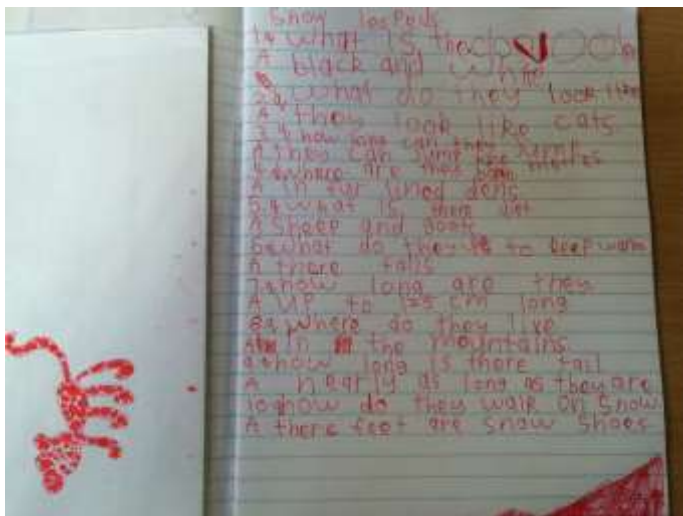 Snow lospods
1q What is the
A black and white
2q What do they look like
A they look like cats
3q how long can they jump
A they can jump metres
4q where are they born
A in fur lined dens
5q what is there diet
A sheep and goats
6q what do they to keep warm
A there tails
7q how long are they
A UP to 125 cm long
8q where do they live
A in the mountains
9q how long is there tail
A nearly as long as they are
10q how do they walk on snow
A there feet are snow shoes